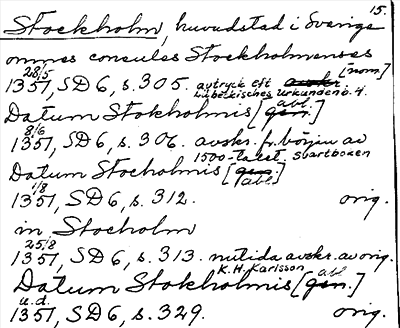 15.
Stockholm, huvudstad i Sverige
omnes consules Stockholmenses
28/5 [nom.]
1351, SD 6, s. 305. avtryck eft. avskr.
Lübeckisches Urkundenb. 4.
Datum Stokholmis [gen.] abl.
8/6
1351, SD 6, s. 306. avskr. fr. början av
1500-talet. Svartboken
Datum Stocholmis [gen.] abl.
1/8
1351, SD 6, s. 312. orig.
in Stocholm
25/8
1351, SD 6, s. 313. nutida avskr. av orig.
K.H. Karlsson
Datum Stokholmis [gen.] abl.
u.d.
1351, SD 6, s. 329. orig.